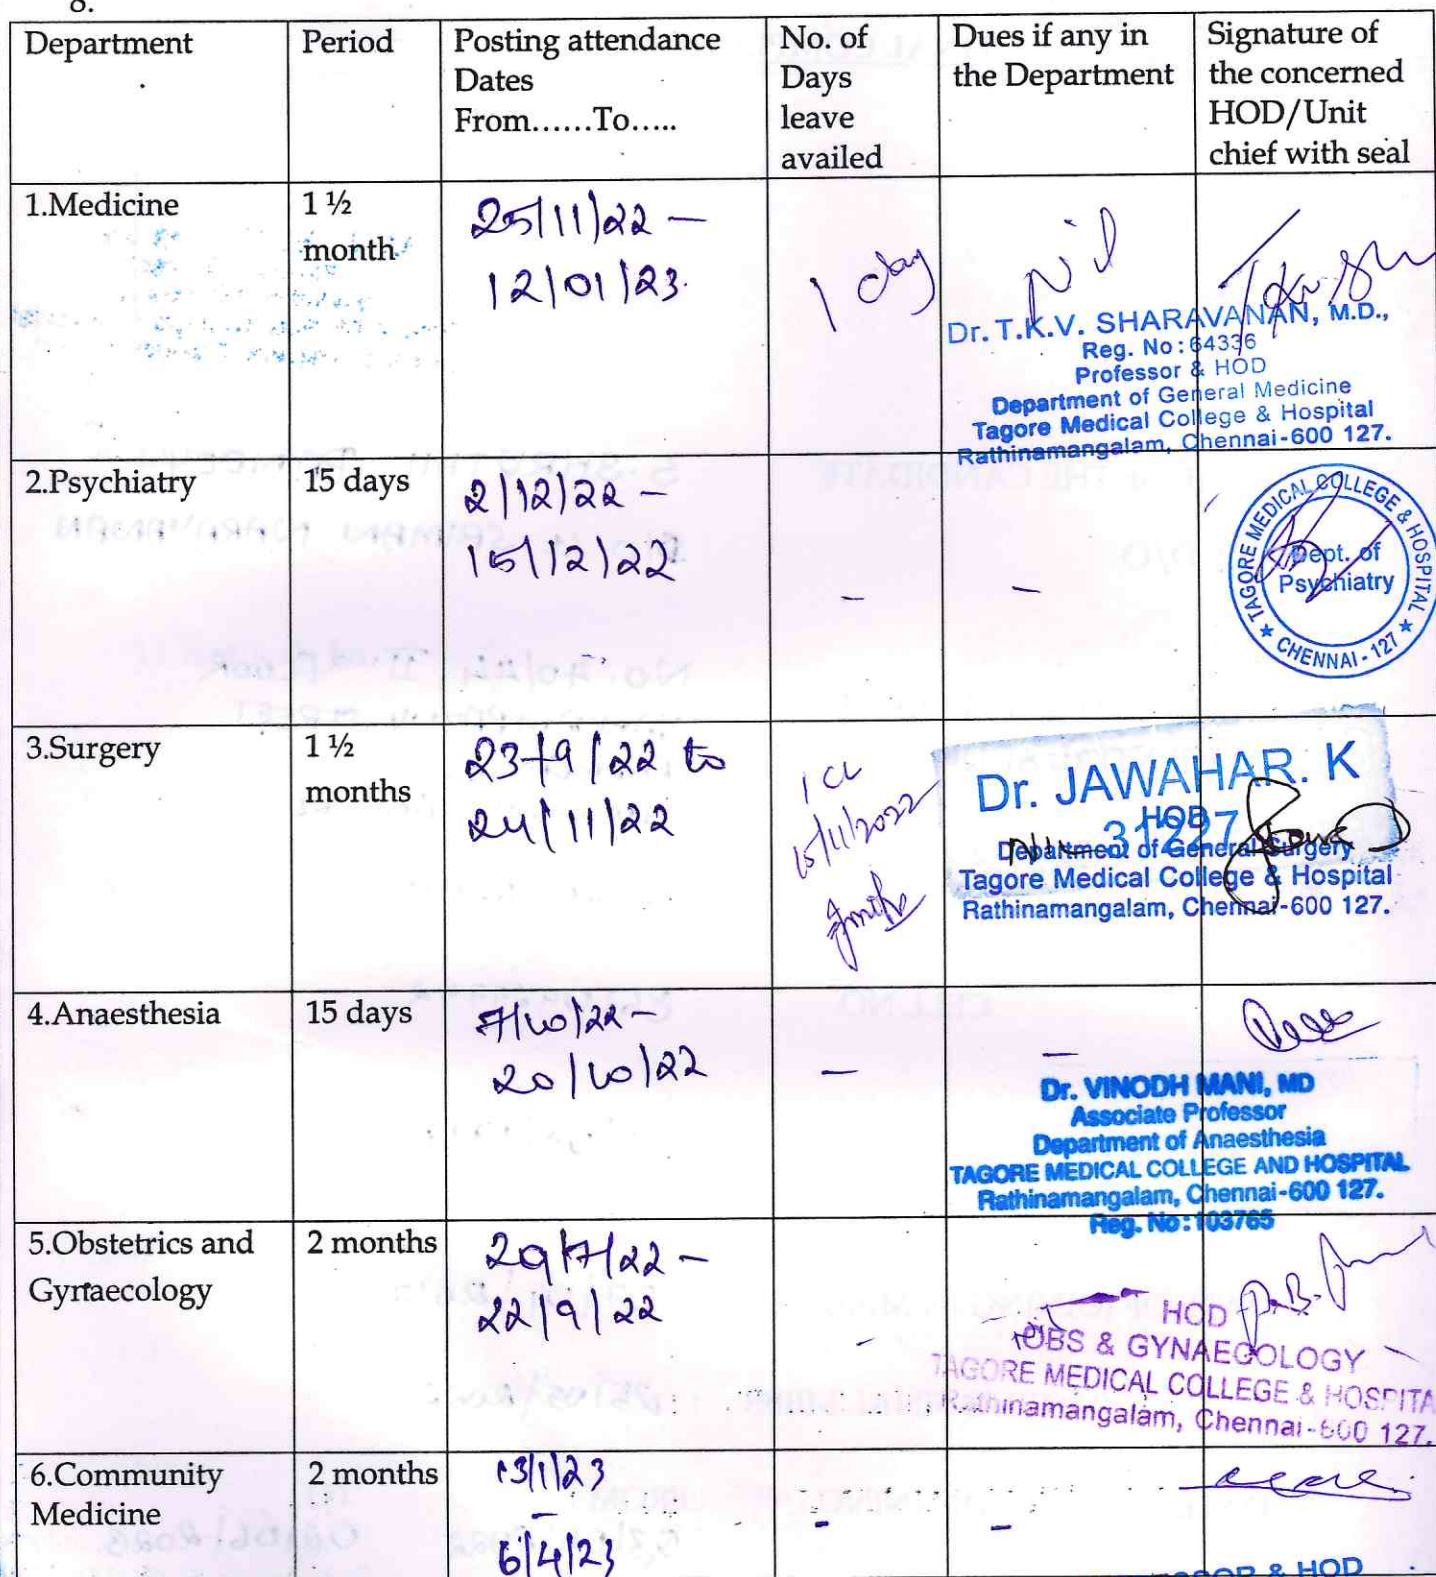 8.
Department
Period
Posting attendance
Dates
From......To.....
No. of
Days
leave
availed
Dues if any in
the Department
Signature of
the concerned
HOD/Unit
chief with seal
1.Medicine
1 ½
month
25/11/22 –
12/01/23.
1 day
Nil
Dr. T.K.V. SHARAVANAN, M.D.,
Reg. No: 64336
Professor & HOD
Department of General Medicine
Tagore Medical College & Hospital
Rathinamangalam, Chennai-600 127.
2.Psychiatry
15 days
2/12/22 –
15/12/22
–
–
TAGORE MEDICAL COLLEGE & HOSPITAL
Dept. of
Psychiatry
★ CHENNAI - 127 ★
3.Surgery
1 ½
months
23/9/22 to
24/11/22
1 CL
15/11/2022
Dr. JAWAHAR. K
31227
HOD
Nil
Department of General Surgery
Tagore Medical College & Hospital
Rathinamangalam, Chennai-600 127.
4.Anaesthesia
15 days
7/10/22 –
20/10/22
–
–
Dr. VINODH MANI, MD
Associate Professor
Department of Anaesthesia
TAGORE MEDICAL COLLEGE AND HOSPITAL
Rathinamangalam, Chennai-600 127.
Reg. No: 103765
5.Obstetrics and
Gynaecology
2 months
29/7/22 –
22/9/22
–
HOD
OBS & GYNAECOLOGY
TAGORE MEDICAL COLLEGE & HOSPITA
Rathinamangalam, Chennai-600 127.
6.Community
Medicine
2 months
13/1/23
–
6/4/23
–
–
& HOD